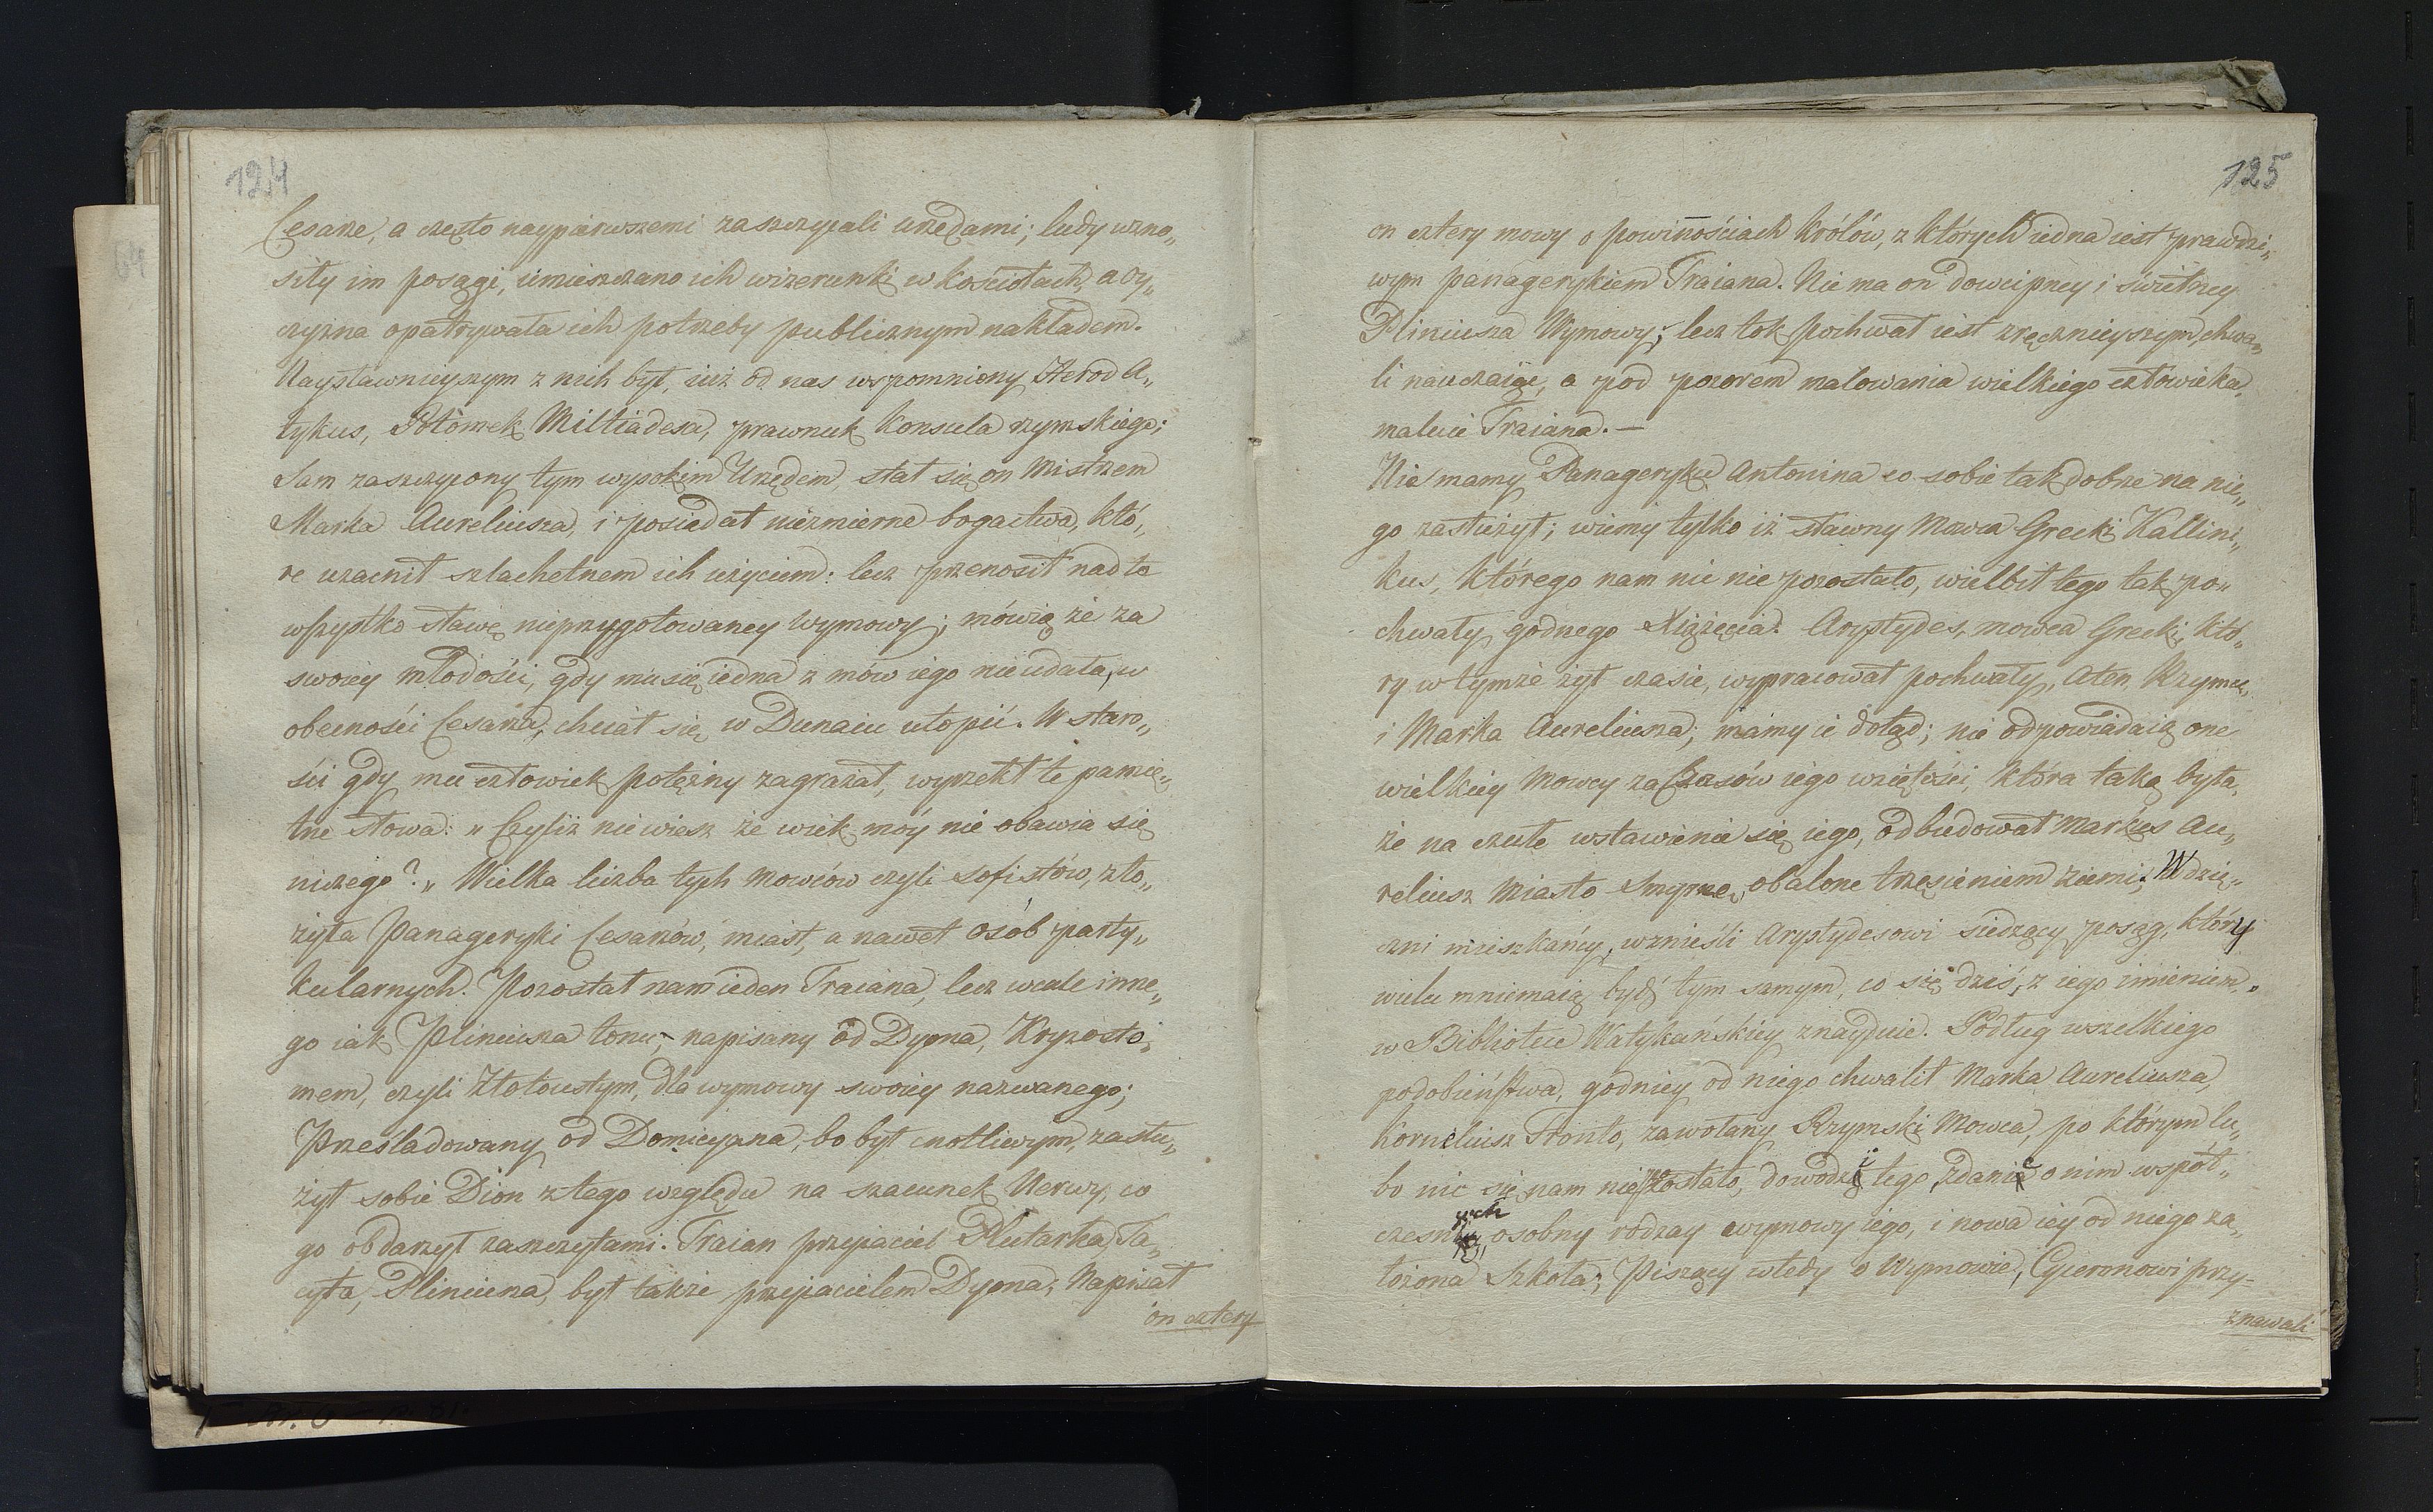 124
Cesarze, a często naypierwszemi zaszczycali urzędami; ludy wzno„
siły im posągi, umieszczano ich wizerunki w kościołach, a oy„
czyzna opatrywała ich potrzeby publicznym nakładem.
Naysławnieyszym z nich był, już od nas wspomniony Herod A„
tykus, Potomek Miltiadesa, prawnuk Konsula rzymskiego;
Sam zaszczycony tym wysokim Urzędem, stał się on Mistrzem
Marka Aureliusza, i posiadał niezmierne bogactwa, któ„
re uzacnił szlachetnem ich użyciem: lecz przenosił nad to
wszystko sławę nieprzygotowaney Wymowy; mówią że za
swoiey młodości, gdy mu się iedna z mów iego nie udała, w
obecności Cesarza, chciał się w Dunaiu utopić. W staro„
ści gdy mu człowiek potężny zagrażał, wyrzekł te pamię„
tne słowa: „ Czyliż nie wiesz że wiek móy nie obawia się
niczego? „ Wielka liczba tych Mowców czyli Sofistów, zło„
żyła Panageryki Cesarzów, miast, a nawet osób party„
kularnych. Pozostał nam ieden Traiana, lecz wcale inne„
go iak Pliniusza tonu, napisany od Dyona, Kryzosto„
mem, czyli Złotoustym, dla wymowy swoiey nazwanego;
Prześladowany od Domicyana, bo był cnotliwym, zasłu„
żył sobie Dion z tego względu na szacunek Nerwy, co
go obdarzył zaszczytami. Traian przyiaciel Plutarka, Ta„
cyta, Pliniusza, był także przyiacielem Dyona; Napisał
on cztery
125
on cztery mowy o powinnościach Królów, z których iedna iest prawdzi„
wym panagerykiem Traiana. Nie ma on dowcipney i świetney
Pliniusza Wymowy; lecz tok pochwał iest zręcznieyszym, chwa„
li nauczaiąc, a pod pozorem malowania wielkiego człowieka,
maluie Traiana.—
Nie mamy Panageryku Antonina co sobie tak dobrze na nie„
go zasłużył; wiemy tylko iż sławny Mowca Grecki Kallini„
kus, którego nam nic nie pozostało, wielbił tego tak po„
chwały godnego Xiążęcia. Arystydes, mowca Grecki, któ„
ry w tymże żył czasie, wypracował pochwały, Aten, Rzymu,
i Marka Aureliusza; mamy ie dotąd; nie odpowiadaią one
wielkiey Mowcy za Czasów iego wziętości, która taką była,
że na czułe wstawienie się iego, odbudował Markus Au„
reliusz Miasto Smyrnę, obalone trzęsieniem ziemi; Wdzię„
czni mieszkańcy, wznieśli Arystydesowi siedzący posąg, który
wielu mniemaią bydź tym samym, co się dziś, z iego imieniem,
w Bibliotece Watykańskiey znayduie. Podług wszelkiego
podobieństwa, godniey od niego chwalił Marka Aureliusza,
Korneliusz Fronto, zawołany Rzymski Mowca, po którym lu„
bo nic się nam nie zostało, dowodzi tego, zdanie o nim współ„
czesnych osobny rodzay wymowy iego, i nowa iey od niego za„
łożona Szkoła; Piszący wtedy o Wymowie, Cyceronowi przy-
znawali